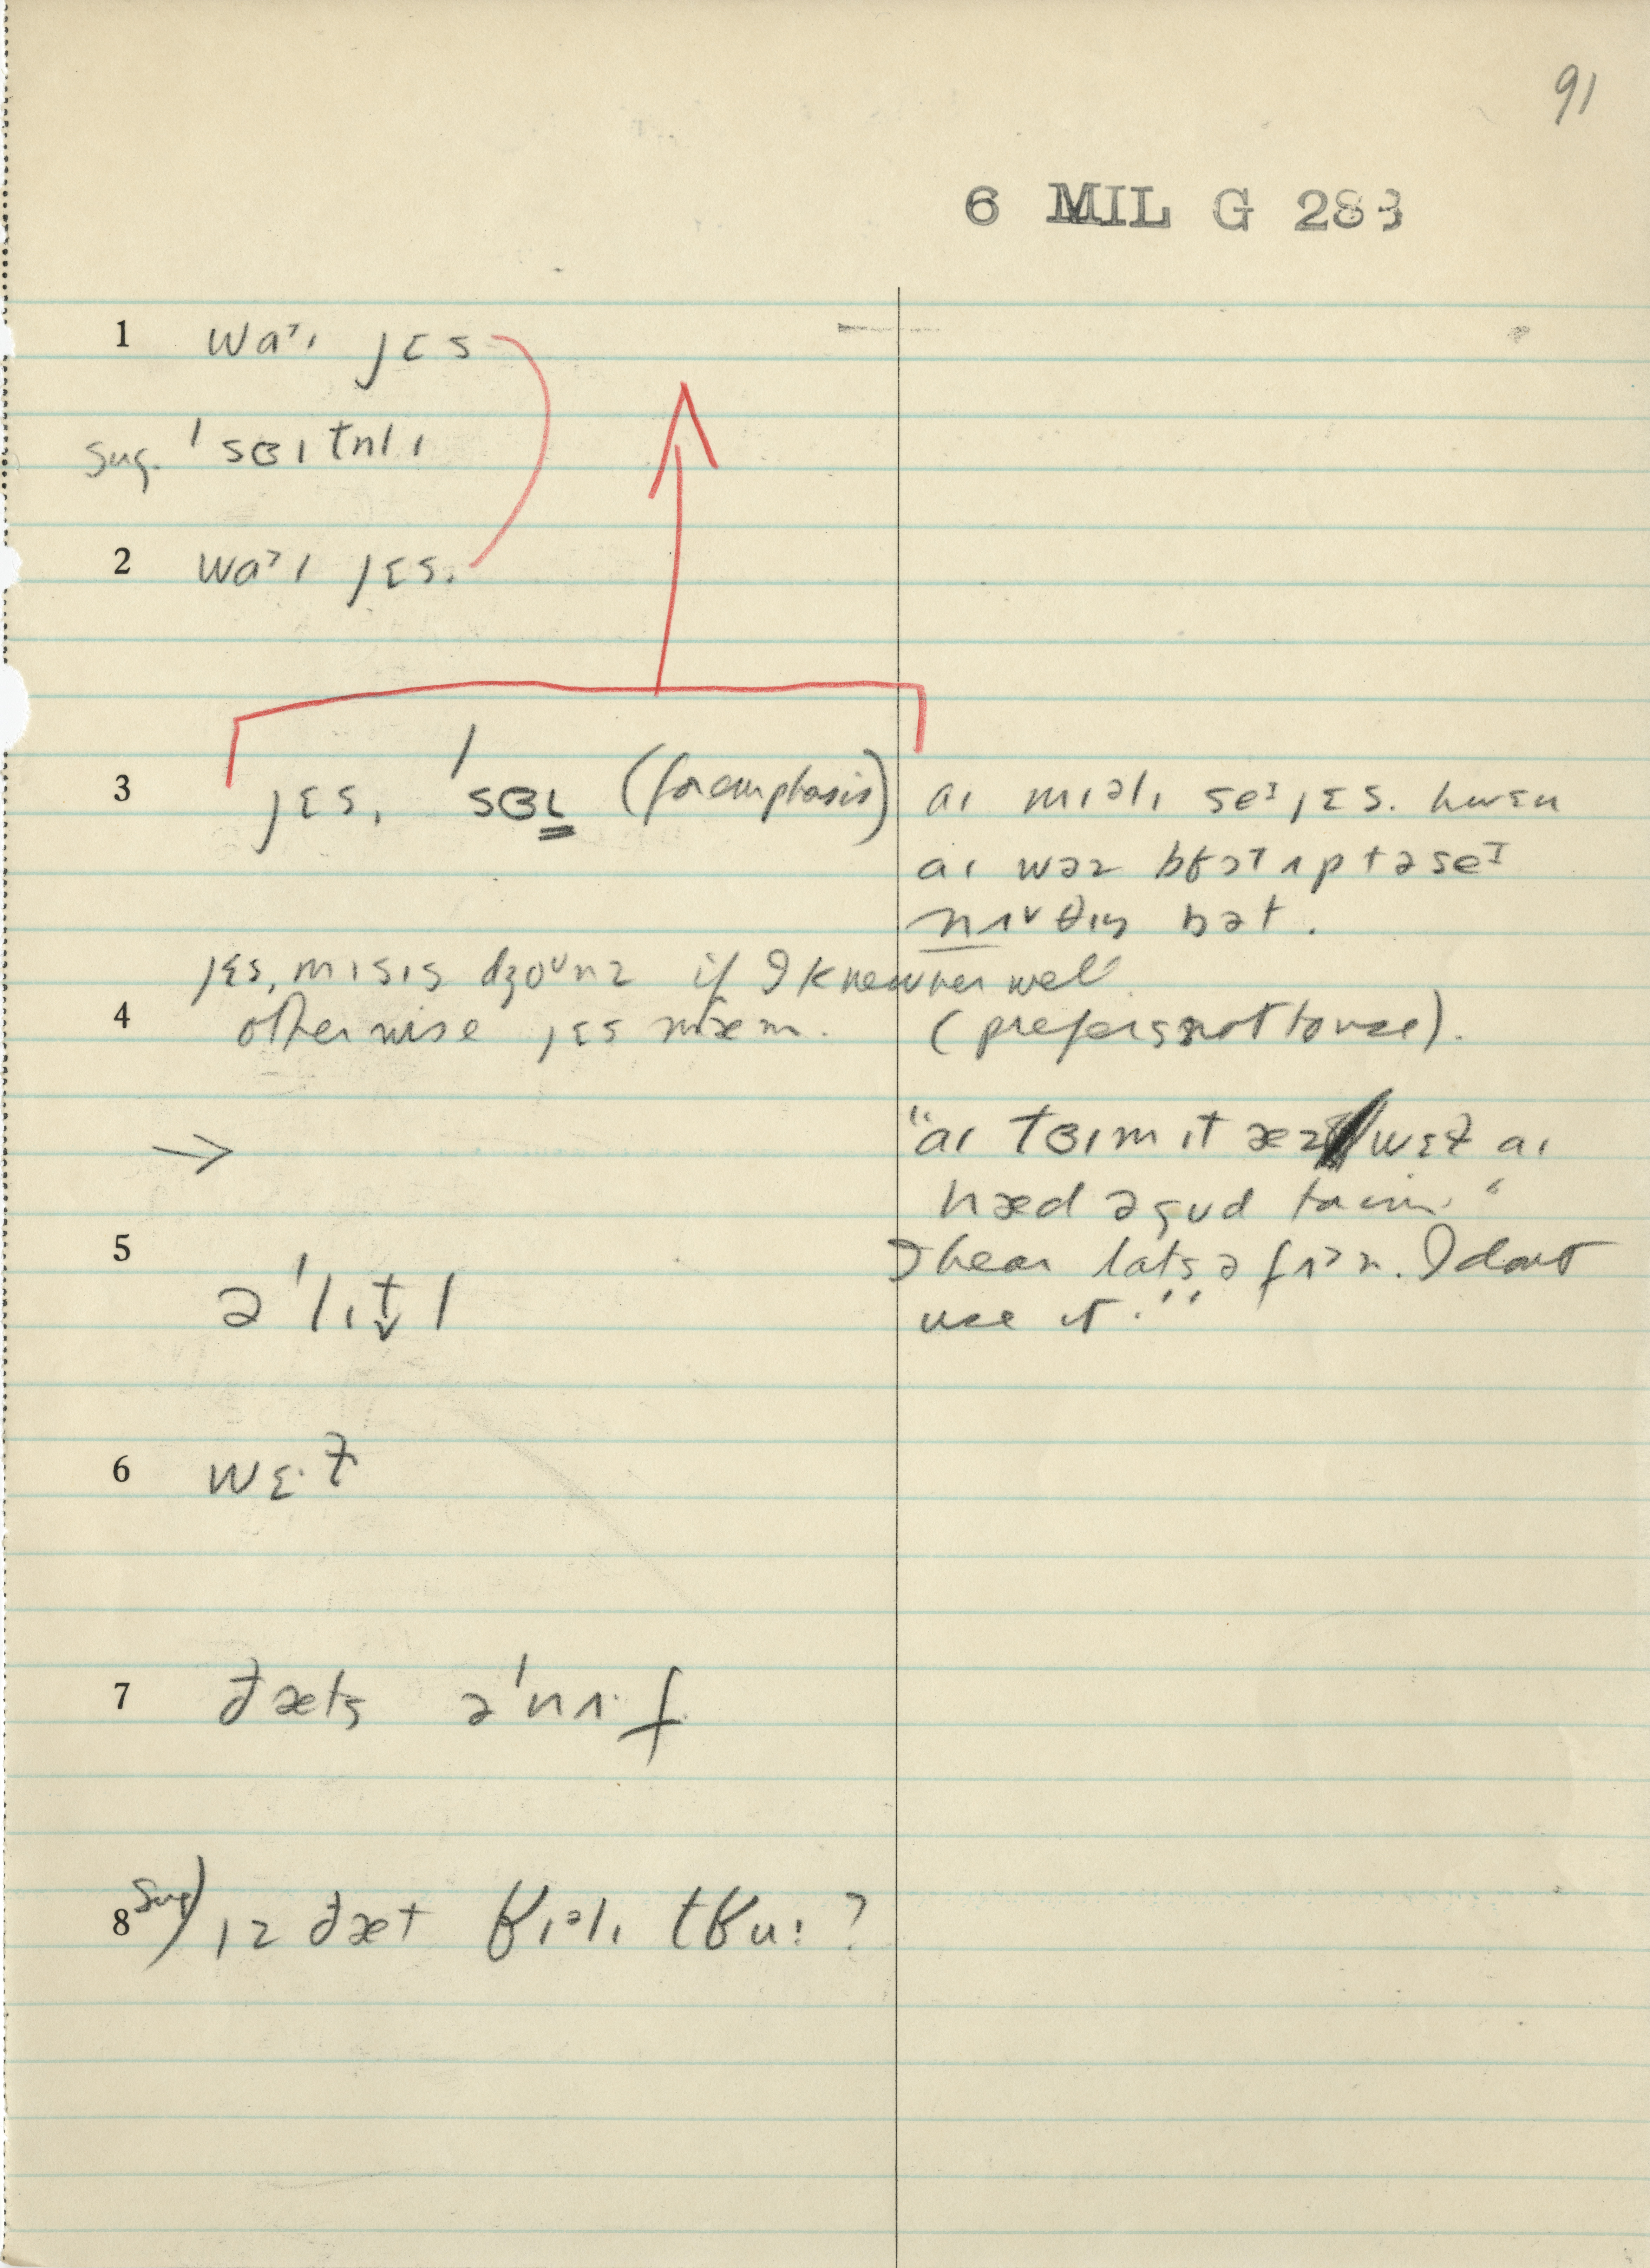 91
6 MIL G 283
1 waˀɪ jɛs
sug. ˈsɜɪtnlɪ
2 waˀɪ jɛs.
3 jɛs, ˈsɜɪ (for emphasis)
aɪ mɪəlɪ seɪ jɛs. hwɛn
aɪ wəz
nʌvθɪŋ bət.
jɛs, mɪsɪs dʒoᵘnz if I knew her well
4 otherwise jɛs mæm. (prefers not to use).
→ "aɪ tɜɪm ɪt æz wɛɫ aɪ
hæd ə gud taim."
5 əˈlɪt̬l
I hear lats ə fʌᵊn. I don't
use it."
6 wɛ·ɫ
7 ðæts əˈnʌ·f
8 sug) ɪz ðæt ʁɪəlɪ tʁu: ?